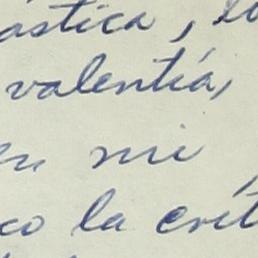 ástica, lo
valentía,
en mi
co la crít